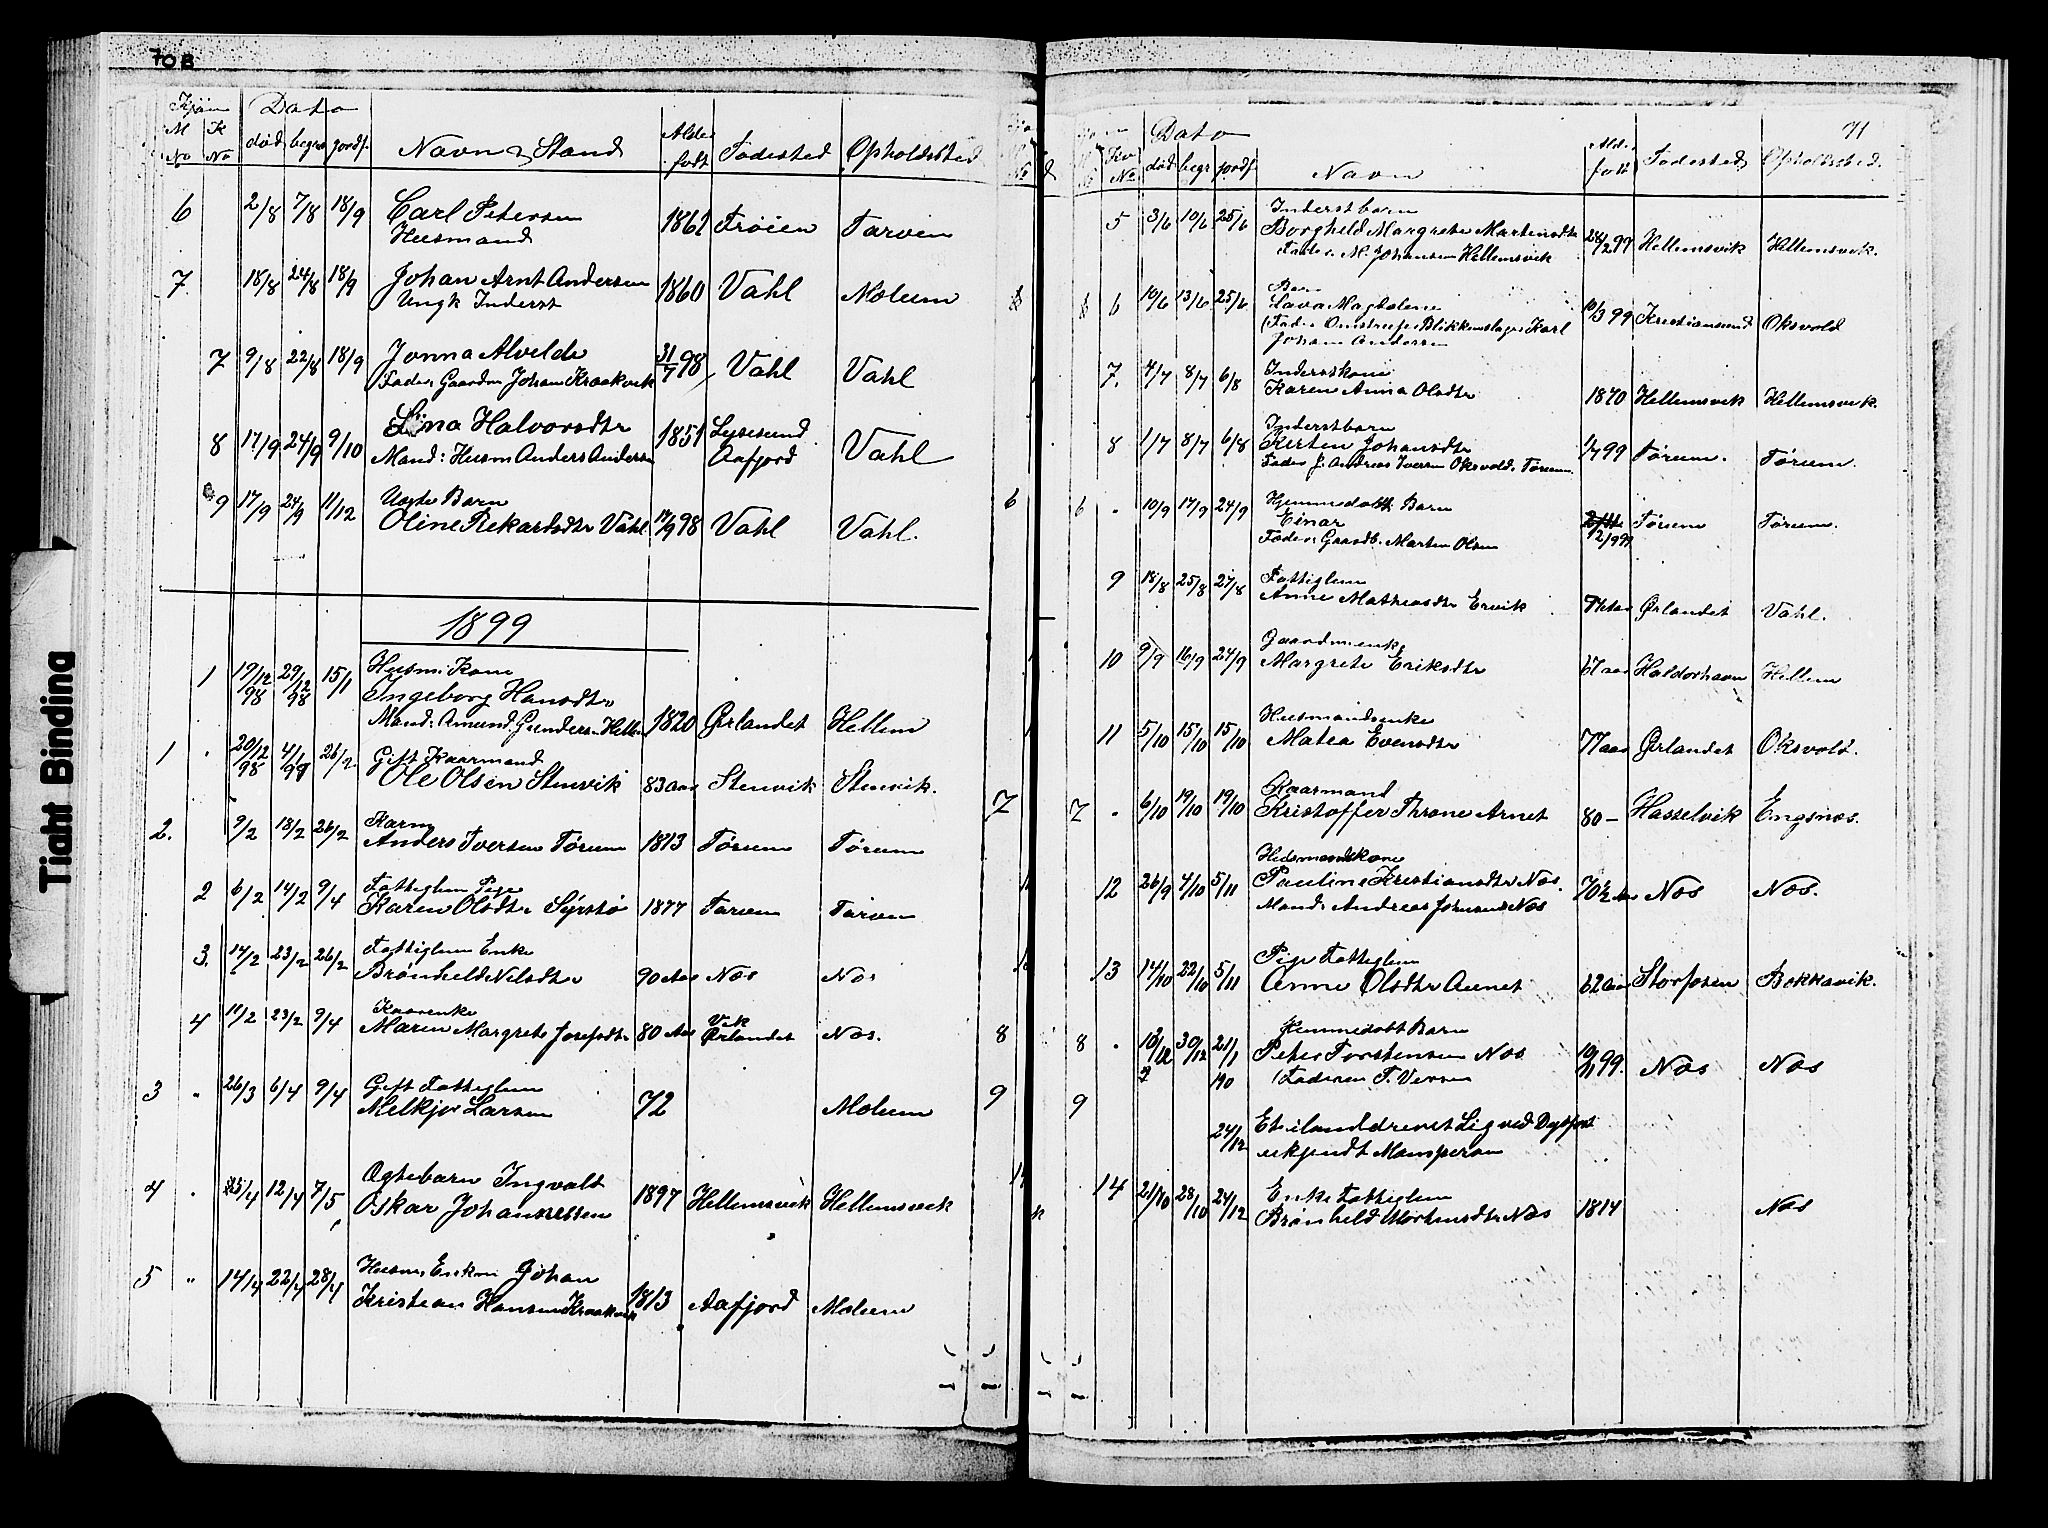 70B
Kjøn Dato
M K død begr jordf. Navn & Stand Alder Fødested Opholdssted
No No født
6 2/8 7/8 18/9 Carl Petersen 1861 Frøien Tarven
Husmand
7. 18/8 24/8 18/9 Johan Arnt Andersen 1860 Vahl Molum
Ungk Inderst
7 9/8 22/8 18/9 Jonna Alvilde 31/7 98 Vahl Vahl
Fader Gaardm Johan Kraakvik
8 17/9 24/9 9/10 Lina Halvorsdtr 1851 Lysesund Vahl
Mand: Husm Anders Anders Aafjord
9 17/9 24/9 11/12 Uægte Barn
Oline Rekardsdtr Vahl 17/9 98 Vahl Vahl.
1899
1 19/12 98 29/12 98 15/1 Husm: Kone
Ingeborg Hansdtr
Mand: Amund Gunders. Hellem 1820 Ørlandet Hellem
1 " 20/12 98 4/1 99 26/2 Gift Kaarmand
Ole Olsen Stenvik 83 aar Stenvik Stenvik.
2. 9/2 18/2 26/2 Karm
Anders Iversen Tørum 1813 Tørum Tørum
2 6/2 14/2 9/4 Fattiglem Pige
Karen Olsdtr Syrstø 1877 Tarven Tarven
3. 14/2 23/2 26/2 Fattiglem Enke
Brønhild Nilsdtr 90 Aar Nes Nes
4 11/2 23/2 9/4 Kaarenke Vik
Maren Margrete Josefsdtr 80 Aar Ørlandet Nes.
3 " 26/3 6/4 9/4 Gift Fattiglem
Melkjor Larsen 72 Molum
4 " 5/4 12/4 7/5 Ogtebarn Ingvald
Oskar Johannessen 1897 Hellemsvik Hellemsvik
5 " 14/4 22/4 28/4 Husm: Enkm Johan
Kristian Hansen Kraakvik 1813 Aafjord Molum
71
Dato
Kv No død begr jordf. Navn Alder født Fødested Opholdssted.
5 3/6 10/6 25/6 Inderstbarn
Borghild Margrete Martinsdtr 28/2 99 Hellemsvik Hellemsvik.
Fader M. Johansen Hellemsvik
6 10/6 13/6 25/6 Barn
Magdalene 10/3 99 Kristiansund Oksvold
(Fader Omstreifer Blikkenslager Karl
Johan Andersen
7. 4/7 8/7 6/8 Inderstkone
Karen Anna Olsdtr 1870 Hellemsvik Hellemsvik.
8 1/7 8/7 6/8 Inderstbarn
Kirsten Johansdtr 1/7 99 Tørum. Tørum.
Fader J. Andreas Iversen Oksvold. Tørum
6 " 10/9 17/9 24/9 Hjemmedøbt Barn
Einar 2/9 99 Tørum Tørum.
Fader: Gaardb. Martin Olsen
9 18/8 25/8 27/8 Fattiglem
Anne Mathiasdtr Ervik 74 aar Ørlandet Vahl.
10 9/9 16/9 24/9 Gaardmenke
Margrete Eriksdtr 67 aar Haldorhavn Hellem
11 5/10 15/10 15/10 Husmandsenke
Matea Evensdtr 77 aar Ørlandet Oksvold.
7 " 6/10 19/10 19/10 Kaarmand
Kristoffer Throne Arnet 80 — Hasselvik Engsnes.
12 26/9 4/10 5/11 Husmandskone
Pauline Kristiansdtr Nes. 70½ Aar Nes Nes.
Mand: Andreas Johansen Nes
13 14/10 22/10 5/11 Pige Fattiglem
Anne Olsdtr Aunet 62 aar Storfosen Bekkavik.
8 " 10/12 30/12 21/1 Hemmedøbt Barn
Peter Torstensen Nes 10/11 99. Nes Nes
(Faderen T. Versen
9 24/12 Et ilanddrevet Lig ved Dybfest
ukjendt Mansperson
14 21/10 28/10 24/12 Enke Fattiglem
Brønhild Mortensdtr Nes 1814 Nes
Tight Binding